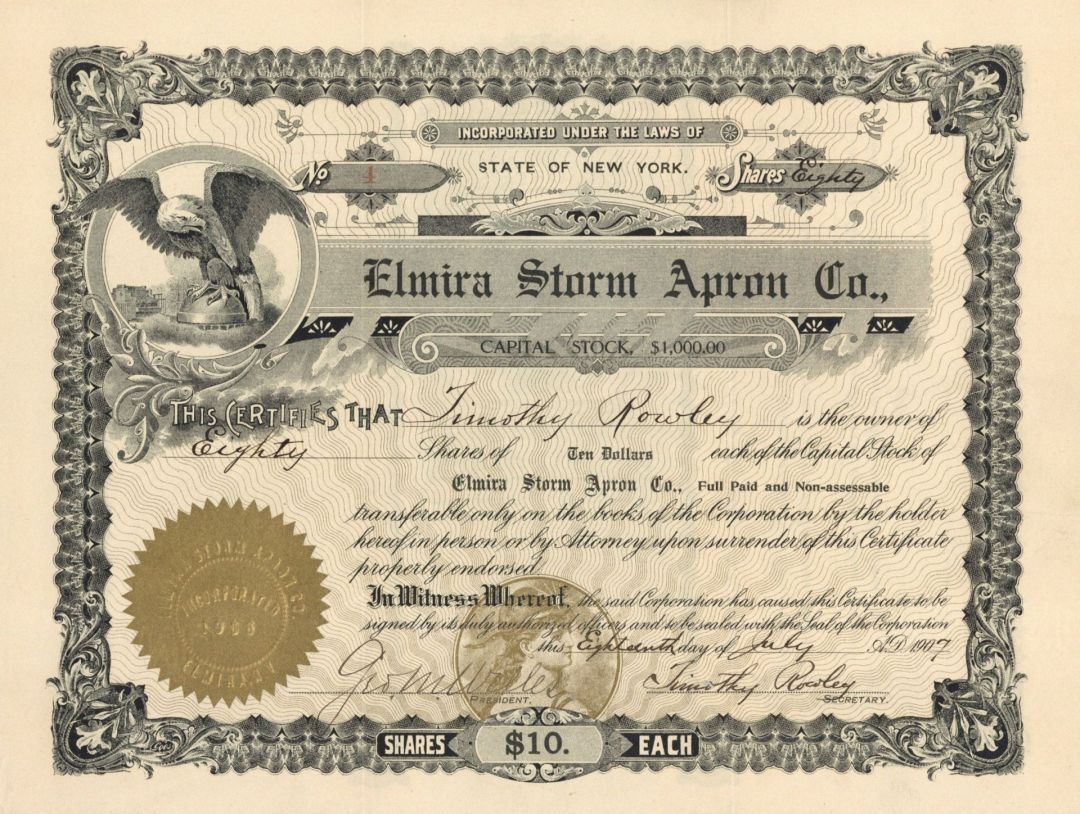 INCORPORATED UNDER THE LAWS OF
No 4 STATE OF NEW YORK. Shares Eighty
Elmira Storm Apron Co.,
CAPITAL STOCK, $1,000.00
THIS CERTIFIES THAT Timothy Rowley is the owner of
Eighty Shares of Ten Dollars each of the Capital Stock of
Elmira Storm Apron Co., Full Paid and Non-assessable
transferable only on the books of the Corporation by the holder
hereof in person or by Attorney upon surrender of this Certificate
properly endorsed.
In Witness Whereof, the said Corporation has caused this Certificate to be
signed by its duly authorized officers and to be sealed with the Seal of the Corporation
this Eighteenth day of July A.D. 1907
Timothy Rowley
PRESIDENT. SECRETARY.
SHARES $10. EACH
INCORPORATED
1906